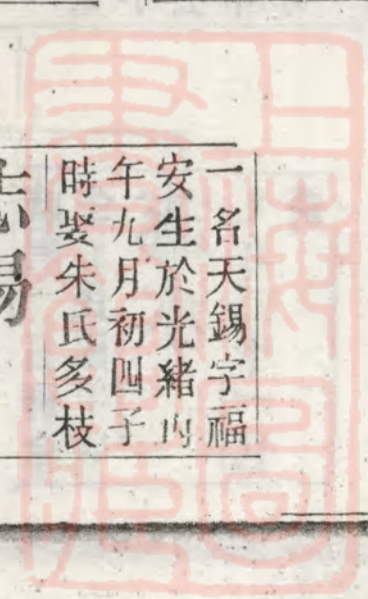 一名天錫字福
安生於光緒丙
午九月初四子
時娶朱氏多枝
錫